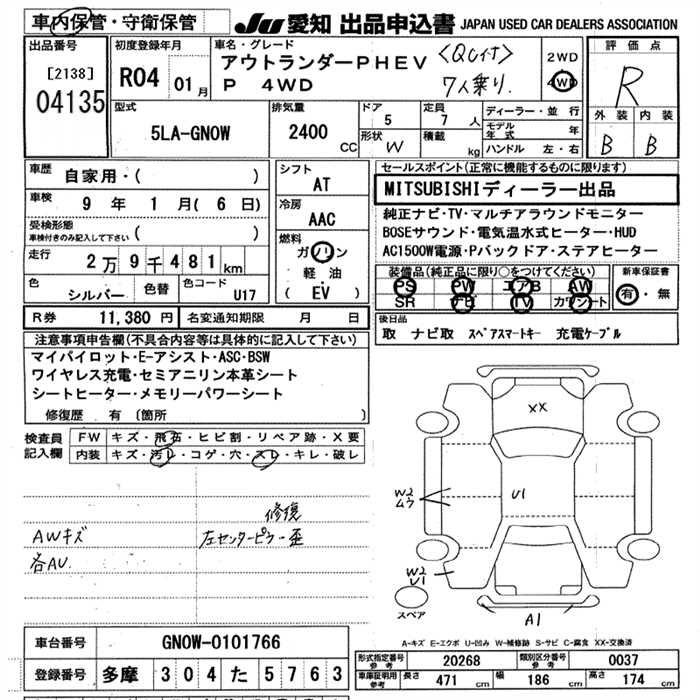 車内保管・守衛保管
JU 愛知 出品申込書 JAPAN USED CAR DEALERS ASSOCIATION
出品番号
[2138]
04135
初度登録年月
R04 01月
車名・グレード
アウトランダーPHEV <QCイオ>
P 4WD 7人乗り.
2WD
4WD
評価点
R
外装 内装
B B
型式
5LA-GN0W
排気量
2400 CC
ドア
5
形状 W
定員
7 人
積載 kg
ディーラー・並行
モデル年式 年
ハンドル 左・右
車歴
自家用・( )
車検 9年 1月( 6日)
受検形態
車検付きのみ記入して下さい ( )
走行 2万9千481km
色 シルバー 色替 色コード U17
シフト
AT
冷房
AAC
燃料
ガソリン
軽油
( EV )
セールスポイント(正常に機能するものに限ります)
MITSUBISHIディーラー出品
純正ナビ・TV・マルチアラウンドモニター
BOSEサウンド・電気温水式ヒーター・HUD
AC1500W電源・Pバックドア・ステアヒーター
装備品(純正品に限り○をつけてください)
PS PW エアB AW
SR ナビ TV カワシート
新車保証書
有・無
R券 11,380円 名変通知期限 月 日
後日品
取 ナビ取 スペアスマートキー 充電ケーブル
注意事項申告欄(不具合内容等は具体的に記入して下さい)
マイパイロット・E-アシスト・ASC・BSW
ワイヤレス充電・セミアニリン本革シート
シートヒーター・メモリーパワーシート
修復歴 有 〔箇所 〕
検査員記入欄
FW キズ・飛石・ヒビ割・リペア跡・X要
内装 キズ・汚レ・コゲ・穴・スレ・キレ・破レ
修復
AWキズ 左センターピラー歪
各AU.
XX
U1
W2
ムウ
W2
U1
スペア
A1
A-キズ E-エクボ U-凹み W-補修跡 S-サビ C-腐食 XX-交換済
車台番号 GN0W-0101766
登録番号 多摩 304 た 5763
形式指定番号 参考 20268 類別区分番号 参考 0037
車庫証明用 参考 長さ 471 cm 幅 186 cm 高さ 174 cm